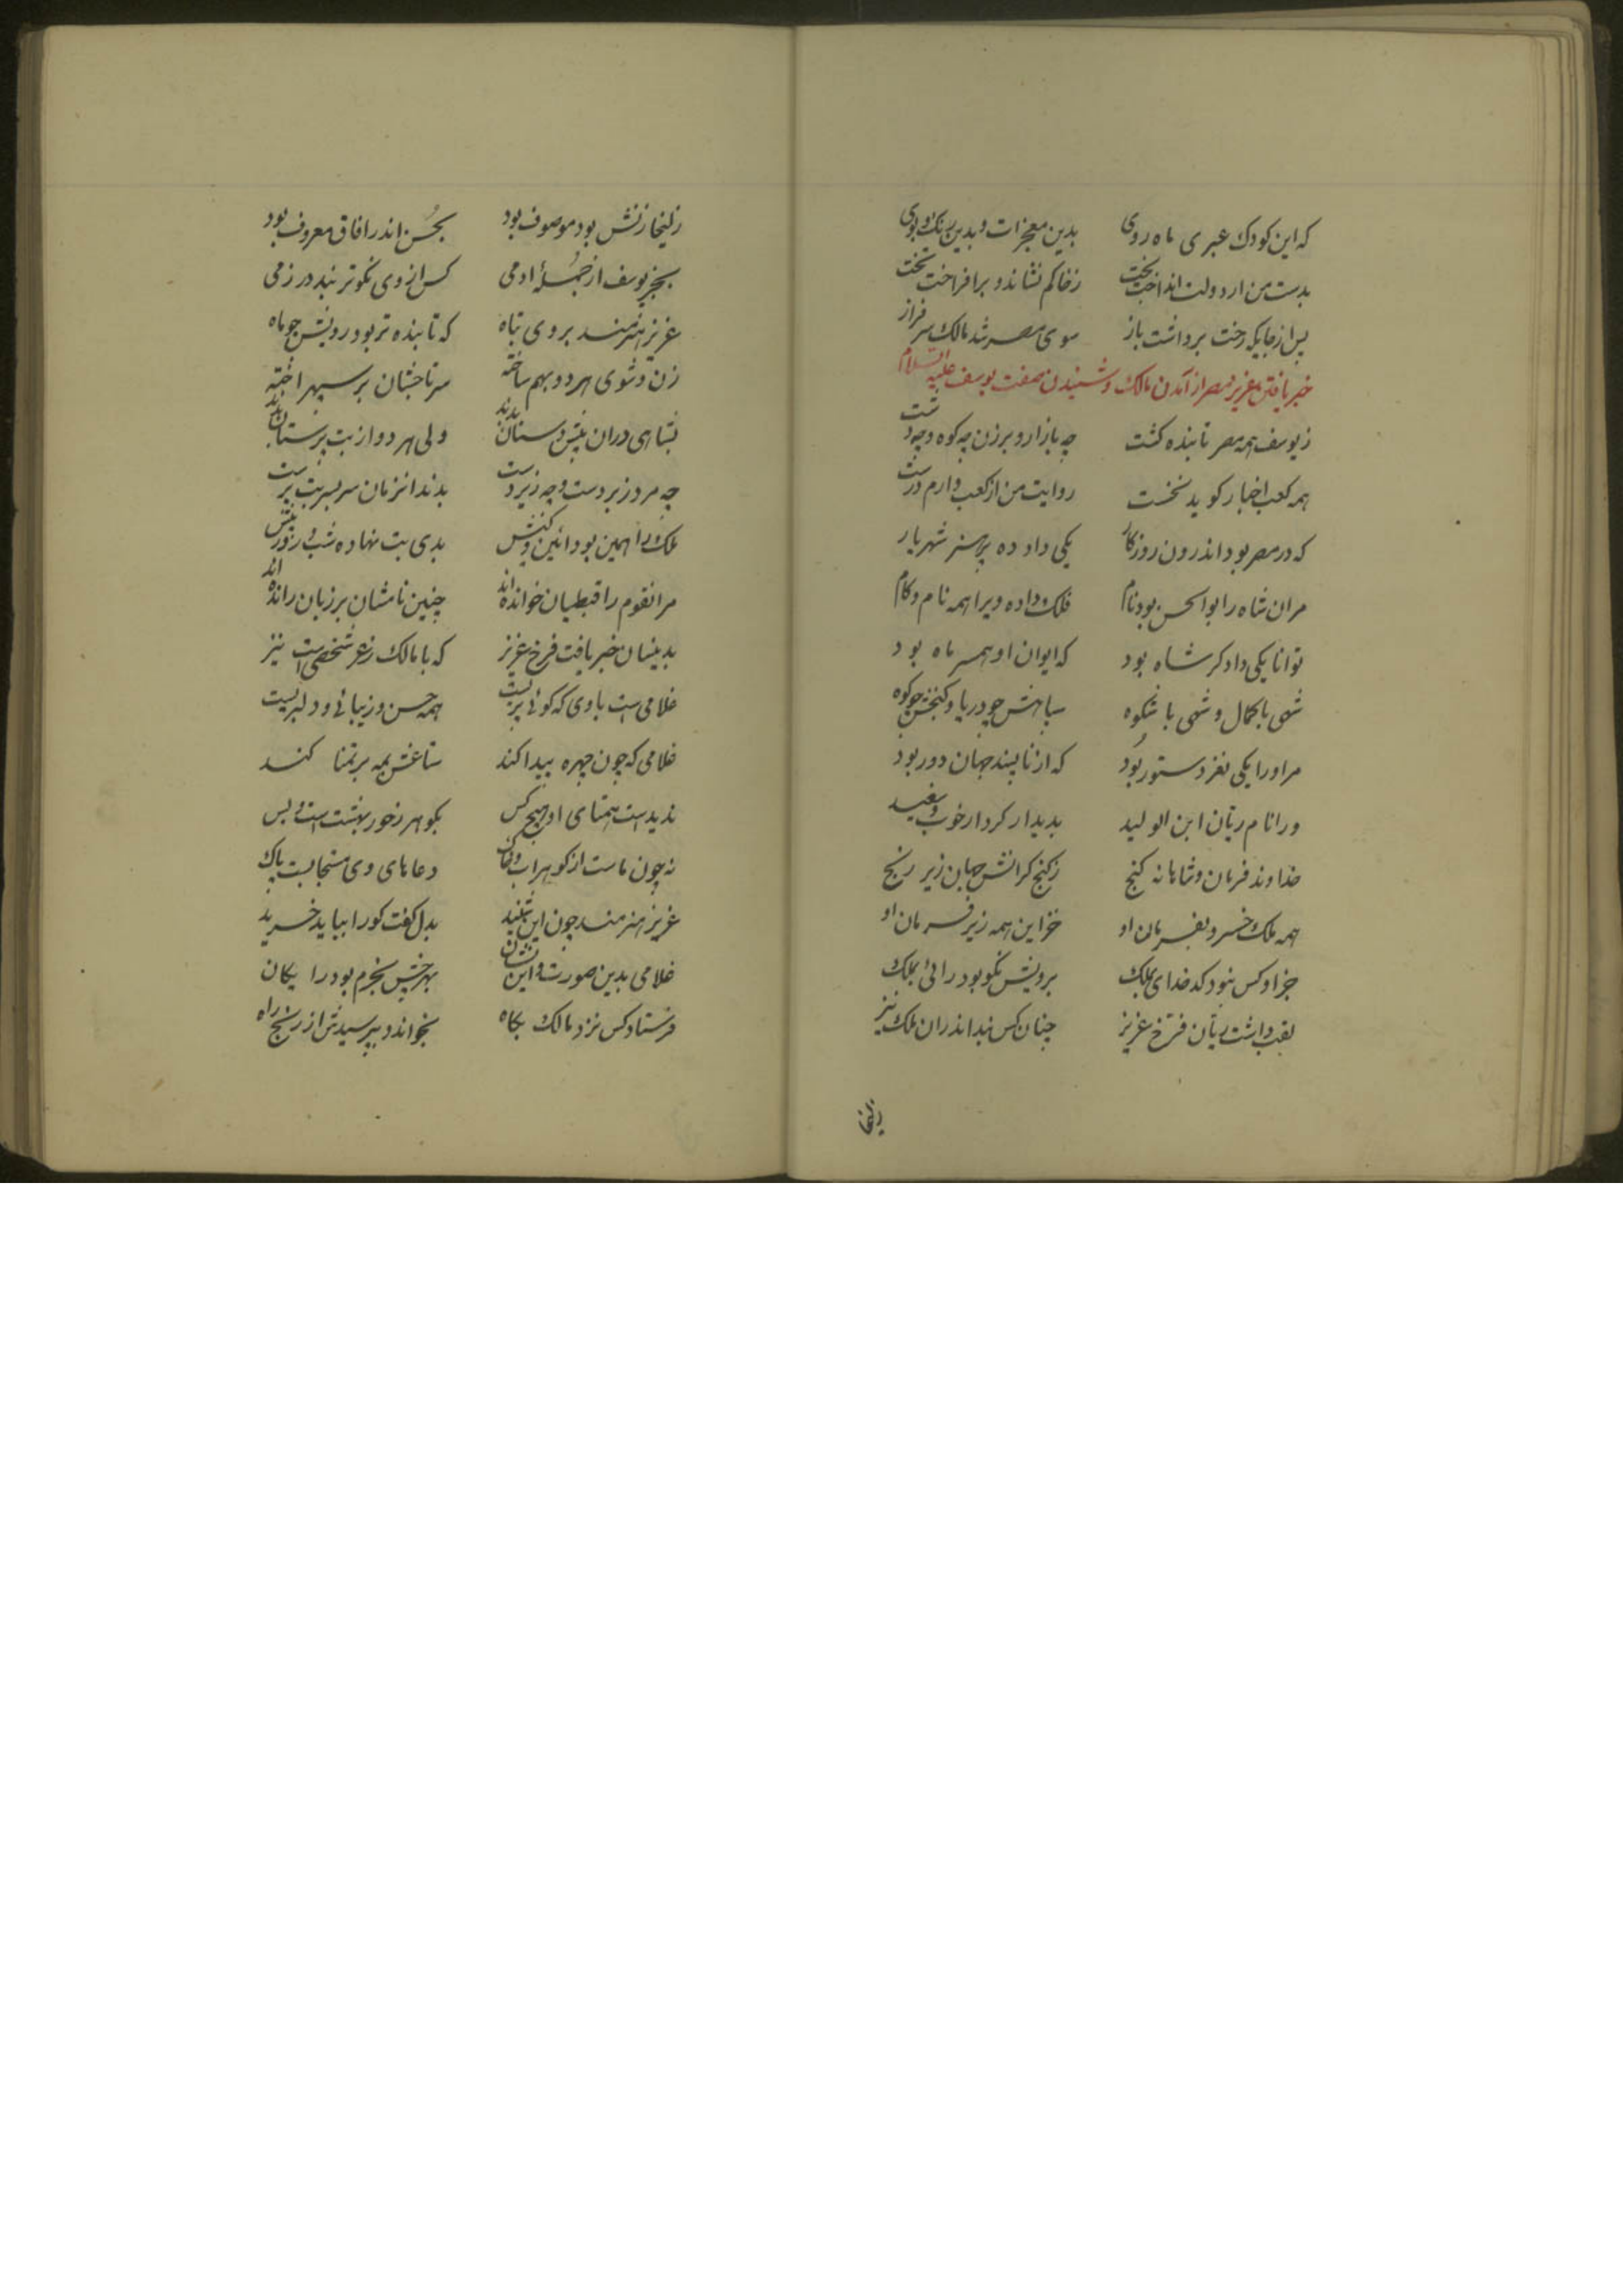 که این کودک عبری ماه روی بدین معجزات و بدین رنک و بوی
بدست من از دولت انداخت بخت ز خاکم نشاند و برافراخت تخت
پس از جایکه رخت برداشت باز سوی مصر شد مالک سرفراز
خبر یافتن عزیز مصر از آمدن مالک و شنیدن صفت یوسف علیه السلام
ز یوسف همه مصر تابنده کشت چه بازار و برزن چه کوه و چه دشت
همه کعب اخبار کوید نخست روایت من از کعب دارم درست
که در مصر بود اندرون روزکار یکی داد ده پر هنر شهریار
مر ان شاه را بوالحسن بود نام فلک داده ویرا همه نام و کام
توانا یکی دادکر شاه بود که ایوان او همسر ماه بود
شهی با کمال و شهی با شکوه سپاهش چو دریا و کنجش چو کوه
مر او را یکی نغز دستور بود که از ناپسند جهان دور بود
ورا نام ریان ابن الولید بدیدار کردار خوب و سعید
خداوند فرمان و شاهانه کنج ز کنج کرانش جهان زیر رنج
همه ملک خسرو بفرمان او خزاین همه زیر فرمان او
جز او کس نبود کدخدای ملک برویش نکو بود رائی بملک
لقب داشت ریان فرخ عزیز چنان کس نبد اندران ملک نیز
زلیخا
زلیخا زنش بود موصوف بود بحسن اندر افاق معروف بود
بجز یوسف از جملهٔ ادمی کس از وی نکوتر نبد در زمی
عزیز هنرمند بر وی تباه که تابنده تر بود رویش چو ماه
زن و شوی هر دو بهم ساخته سر تاجشان بر سپهر اخته
بشاهی دران پیش دستان بدند ولی هر دو از بت پرستان بدند
چه مرد زبردست و چه زیردست بدند انزمان سربسر بت پرست
ملک را همین بود ائین و کنش بدی بت نهاده شب و روز پیش
مر انقوم را قبطیان خوانده اند چنین نامشان بر زبان رانده اند
بدینسان خبر یافت فرخ عزیز که با مالک زعر شخصی است نیز
غلامی است با وی که کوئی پریست همه حسن و زیبائی و دلبریست
غلامی که چون چهره پیدا کند ستاغش همه بر تمنا کند
ندیدست همتای او هیچ کس بکوهر ز خور بهشت است و بس
نه چون ماست از کوهر اب و خاک دعاهای وی مستجابست پاک
عزیز هنرمند چون این شنید بدل کفت کو را بباید خرید
غلامی بدین صورت و این نشان بهر چش بخرم بود رایکان
فرستاد کس نزد مالک بکاه بخواند و بپرسیدش از رنج راه